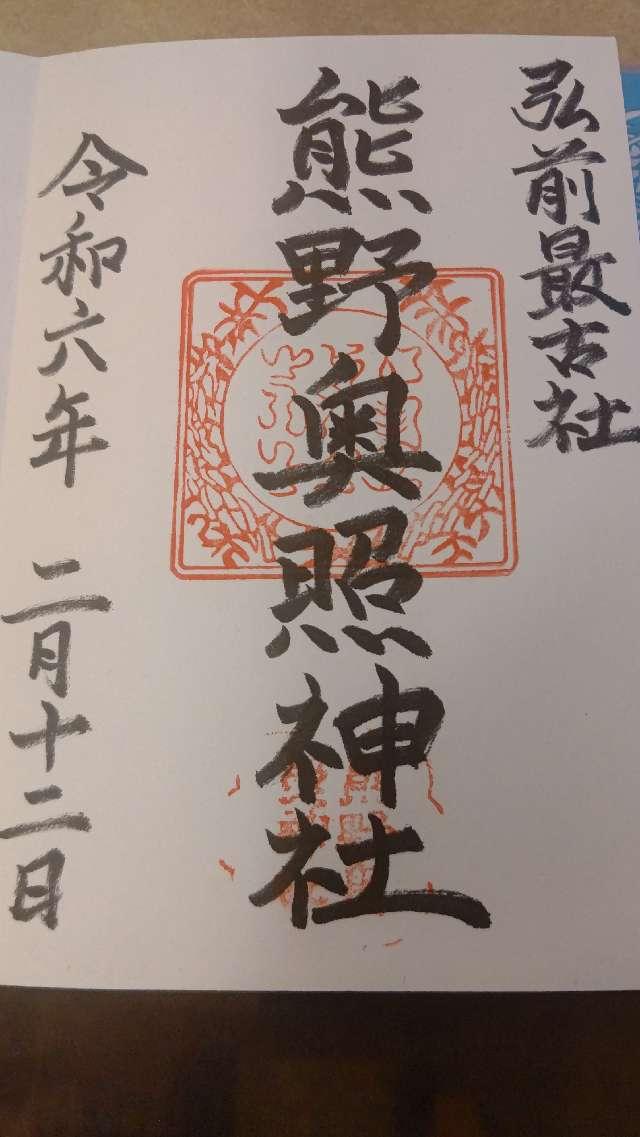 弘前最古社
熊野奥照神社
令和六年 二月十二日